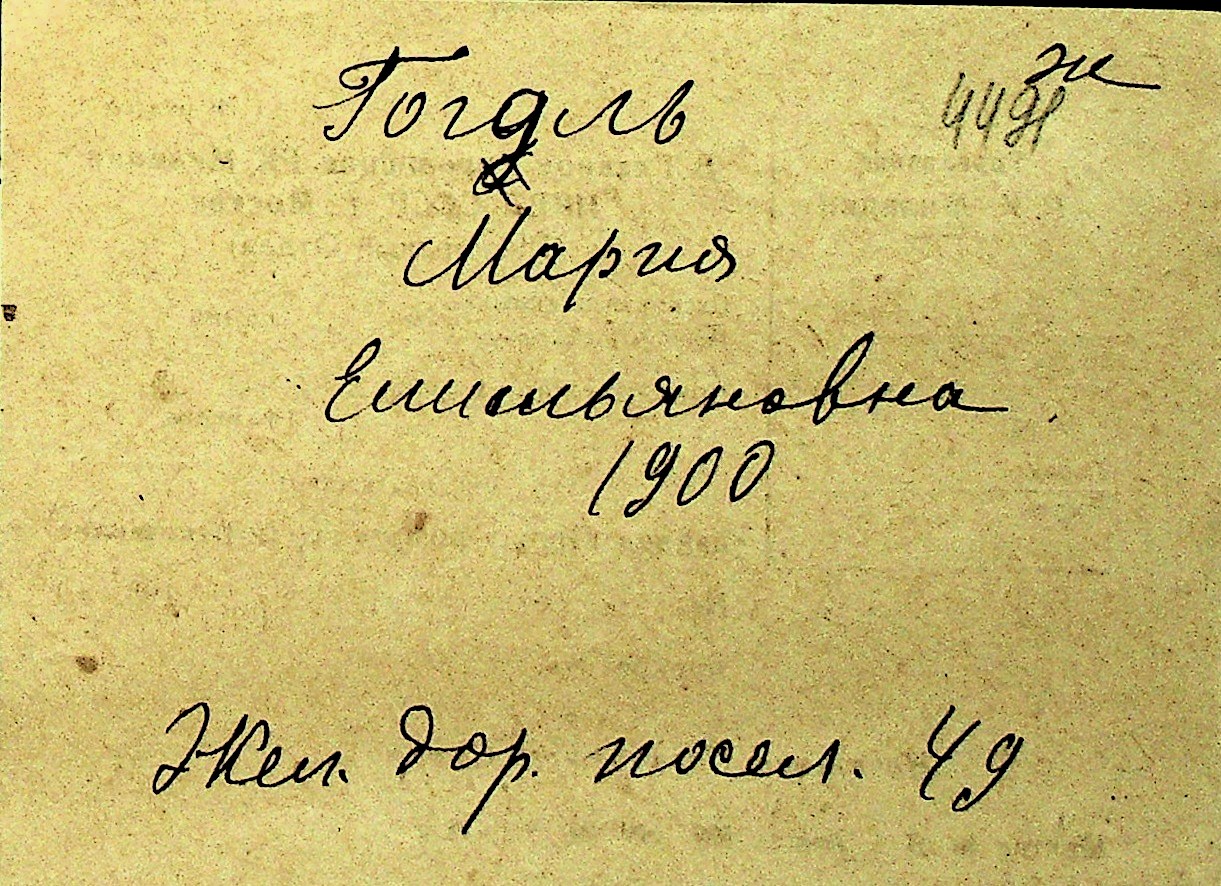 ж
Гоголь
Мария
Емельяновна
1900
Жел. дор. посел. 49